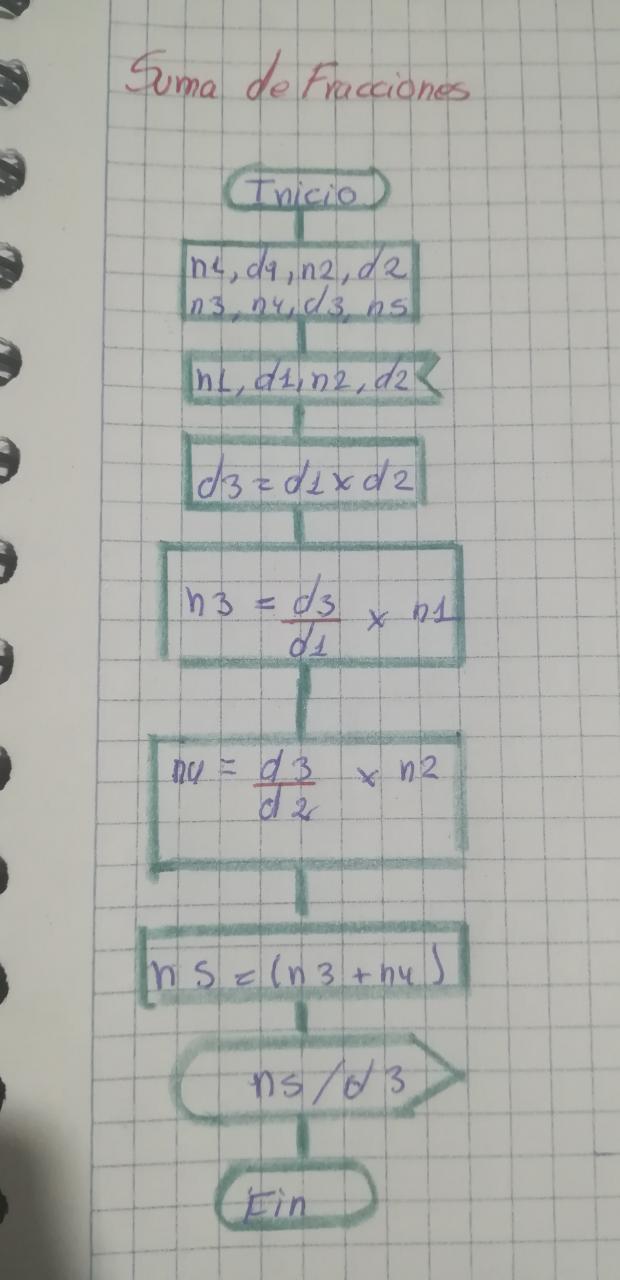 Suma de Fracciones
Inicio
n1, d1, n2, d2
n3, n4, d3, n5
n1, d1, n2, d2
d3 = d1 x d2
n3 = d3/d1 x n1
n4 = d3/d2 x n2
n5 = (n3 + n4)
n5/d3
Fin